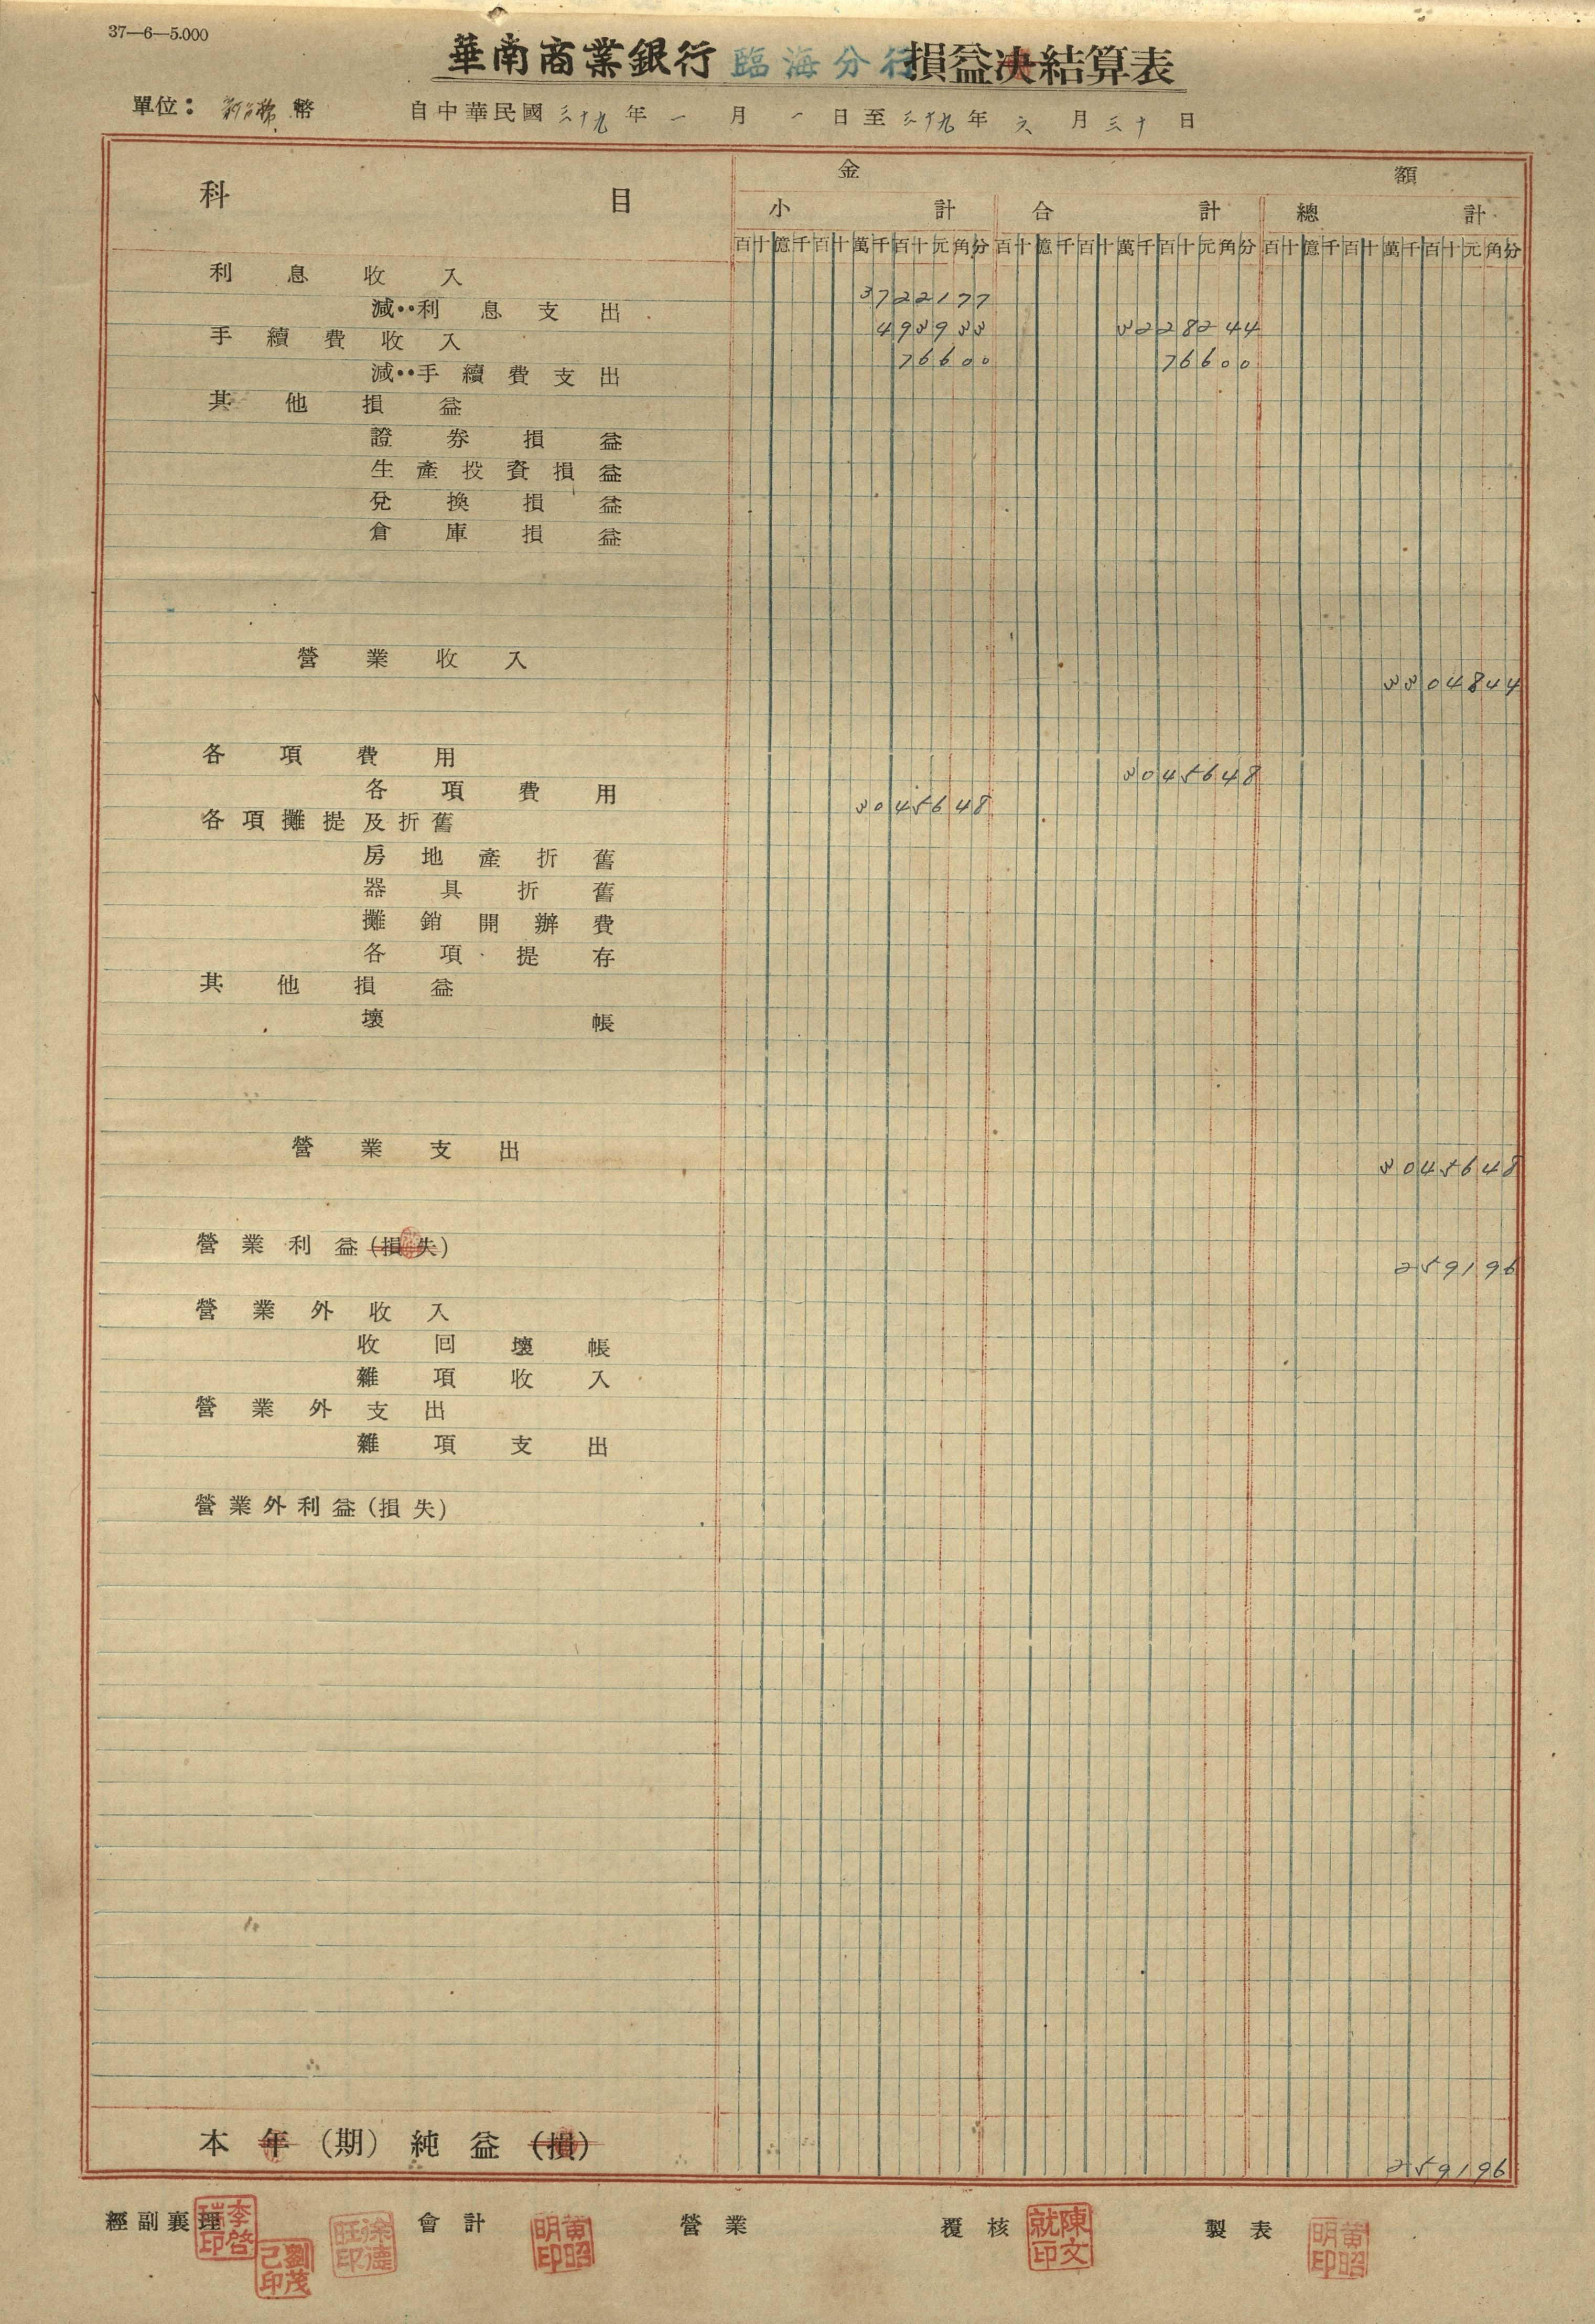 37—6—5.000
華南商業銀行 臨海分行 損益決結算表
單位： 新台幣 幣 自中華民國三十九年一月一日至三十九年六月三十日
科目 金額
小計 合計 總計
百十億千百十萬千百十元角分 百十億千百十萬千百十元角分 百十億千百十萬千百十元角分
利息收入 3722177
減··利息支出 493933 3228244
手續費收入 76600 76600
減··手續費支出
其他損益
證券損益
生產投資損益
兌換損益
倉庫損益
營業收入 3304844
各項費用 3045648
各項費用 3045648
各項攤提及折舊
房地產折舊
器具折舊
攤銷開辦費
各項提存
其他損益
壞帳
營業支出 3045648
營業利益(損失) 259196
營業外收入
收回壞帳
雜項收入
營業外支出
雜項支出
營業外利益(損失)
本年(期)純益(損) 259196
經副襄理 李啓瑞印 劉茂己印 徐德旺印 會計 黃昭明印 營業 覆核 陳文就印 製表 黃昭明印